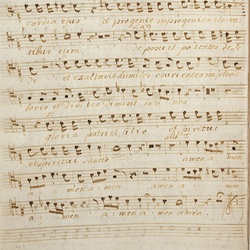 cordia ejus et progenie in progenies timen
tibus eum deposuit potentes de
et exaltavit humiles esurientes implevit
bonis et divites dimisit ina nes
gloria patri et filio et spiritui
et spiritui sancto amen a men
amen a men amen a men
a men a men amen